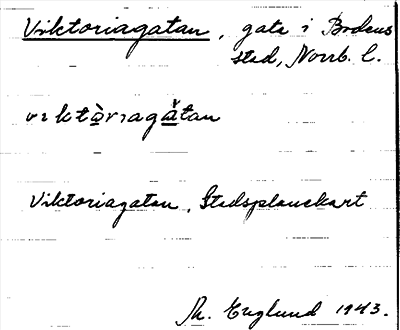 Viktoriagatan, gata i Bodens
stad, Norrb. l.
vıktòrıagǎtan
Viktoriagatan, Stadsplanekart
Th. Englund 1943.